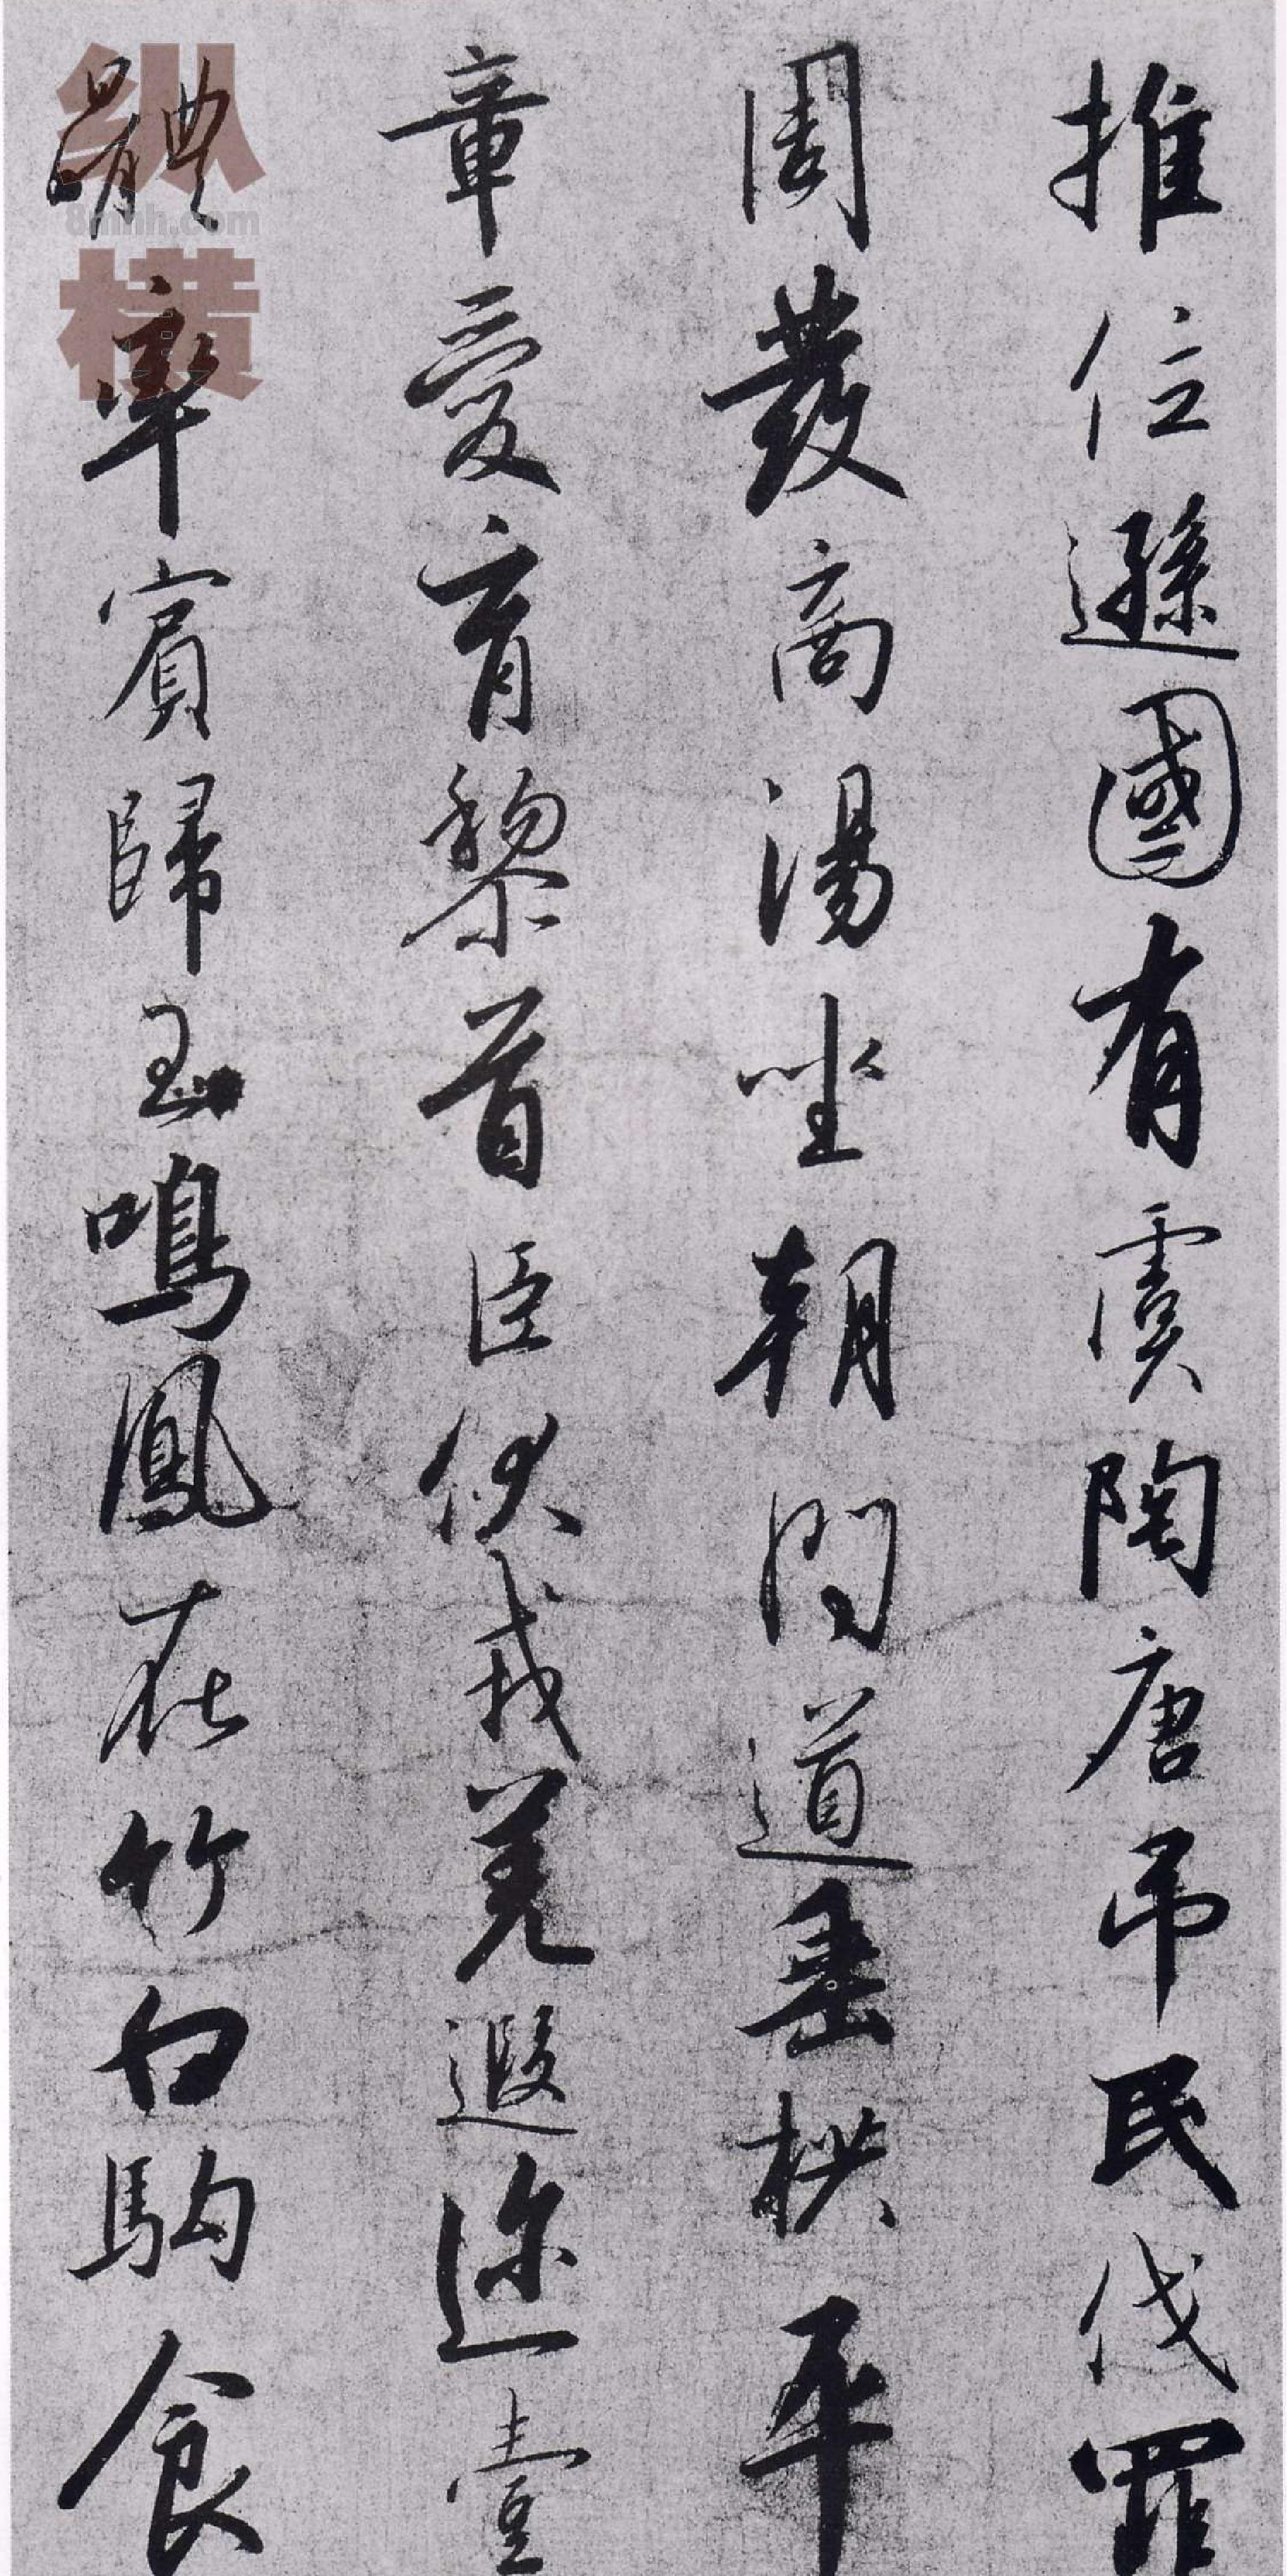 推位遜國有虞陶唐吊民伐罪
周發商湯坐朝問道垂栱平
章愛育黎首臣伏戎羌遐迩壹
體率賓歸王鳴鳳在竹白駒食
纵横